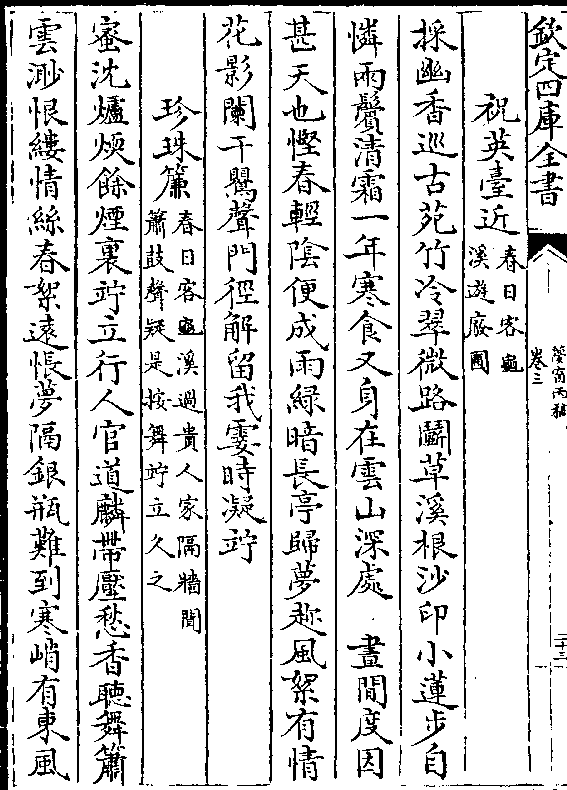 欽定四庫全書
夢窗丙稿
卷三
二十三
祝英臺近
春日客龜
溪遊廢園
採幽香巡古苑竹冷翠微路鬭草溪根沙印小蓮步自
憐兩鬢清霜一年寒食又身在雲山深處　晝閒度因
甚天也慳春輕陰便成雨綠暗長亭歸夢趂風絮有情
花影闌干鶯聲門徑解留我霎時凝竚
珍珠簾
春日客龜溪過貴人家隔牆聞
簫鼓聲疑是按舞竚立久之
蜜沈爐煖餘煙裏竚立行人官道麟帶壓愁香聽舞簫
雲渺恨縷情絲春絮遠悵夢隔銀瓶難到寒峭有東風